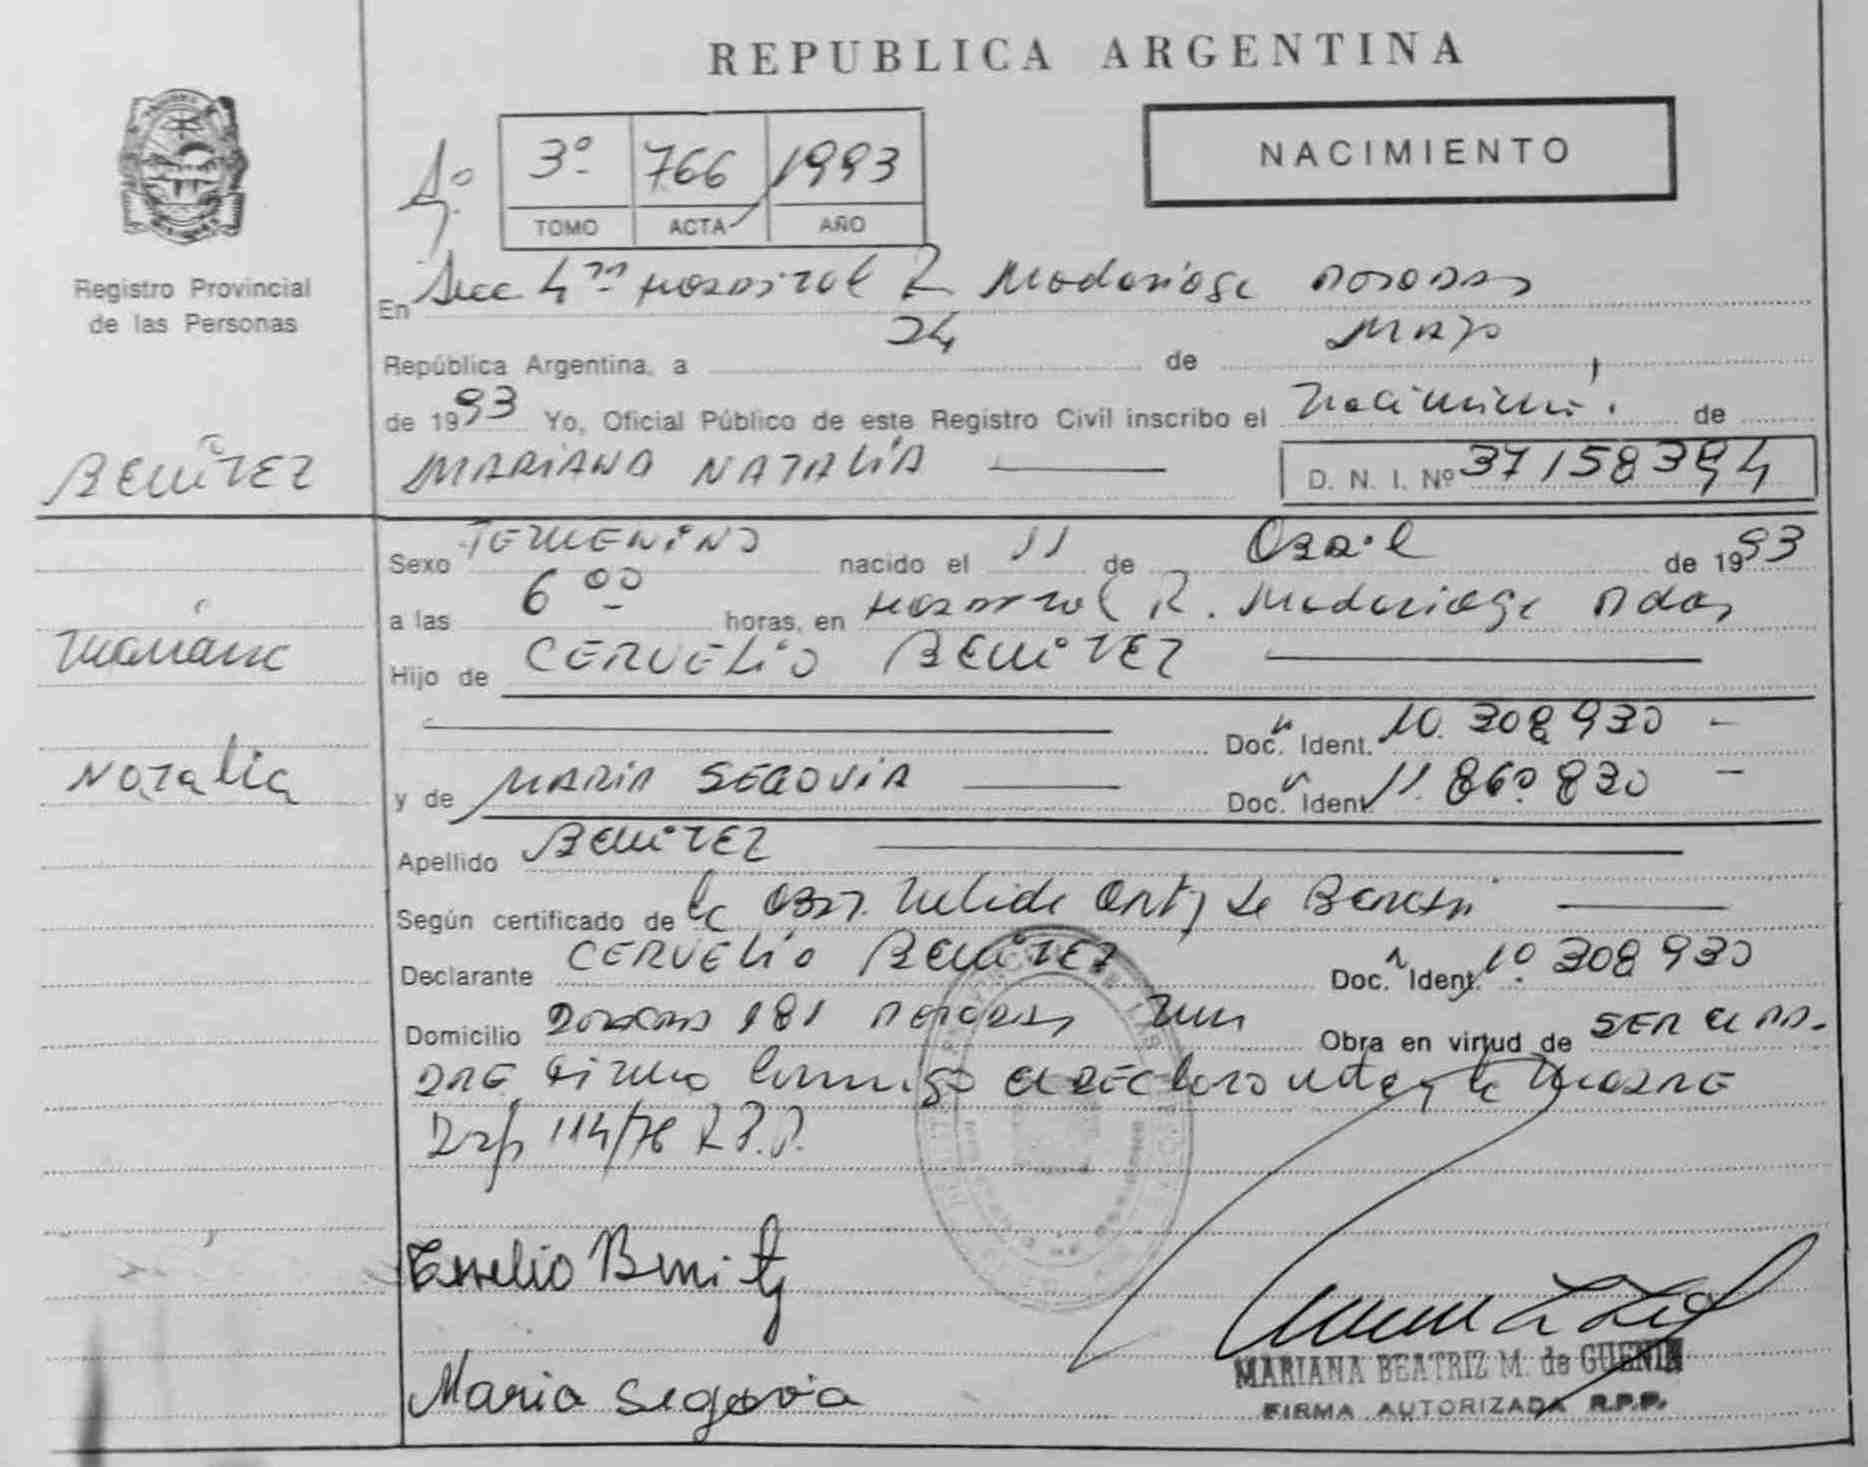 REPUBLICA ARGENTINA
NACIMIENTO
3º 766 1993
TOMO ACTA AÑO
Registro Provincial
de las Personas
En Secc 4ª Hospital R Madariaga Posadas
República Argentina, a 24 de Mayo
de 1993 Yo, Oficial Público de este Registro Civil inscribo el de
BENITEZ
MARIANA NATALIA
D. N. I. Nº 37158394
Sexo FEMENINO nacido el 11 de Abril de 1993
a las 6 00 horas, en Hospital R. Madariaga Pdas
Mariana
Hijo de CERVELIO BENITEZ
Doc. Ident. 10.308 930 -
Natalia
y de MARIA SEGOVIA Doc. Ident. 11.860 830 -
Apellido BENITEZ
Según certificado de la Obst. de
Declarante CERVELIO BENITEZ Doc. Ident. 10.308 930
Domicilio 181 Obra en virtud de SER el PA-
DRE la MADRE
114/76 R.P.P.
Benitez
Maria Segovia
MARIANA BEATRIZ M. de GUENIN
FIRMA AUTORIZADA R.P.P.